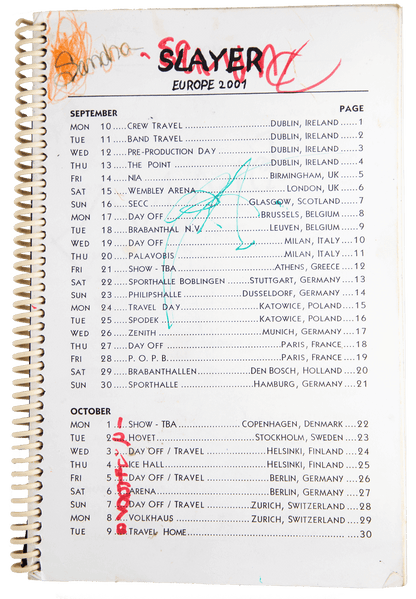 Sandra
SLAYER
EUROPE 2001
SEPTEMBER PAGE
MON 10.....CREW TRAVEL..............................DUBLIN, IRELAND.....1
TUE 11.....BAND TRAVEL..............................DUBLIN, IRELAND.....2
WED 12.....PRE-PRODUCTION DAY..............................DUBLIN, IRELAND.....3
THU 13.....THE POINT..............................DUBLIN, IRELAND.....4
FRI 14.....NIA..............................BIRMINGHAM, UK.....5
SAT 15.....WEMBLEY ARENA..............................LONDON, UK.....6
SUN 16.....SECC..............................GLASGOW, SCOTLAND.....7
MON 17.....DAY OFF..............................BRUSSELS, BELGIUM.....8
TUE 18.....BRABANTHAL N.V...............................LEUVEN, BELGIUM.....9
WED 19.....DAY OFF..............................MILAN, ITALY....10
THU 20.....PALAVOBIS..............................MILAN, ITALY....11
FRI 21.....SHOW - TBA..............................ATHENS, GREECE....12
SAT 22.....SPORTHALLE BOBLINGEN..............................STUTTGART, GERMANY....13
SUN 23.....PHILIPSHALLE..............................DUSSELDORF, GERMANY....14
MON 24.....TRAVEL DAY..............................KATOWICE, POLAND....15
TUE 25.....SPODEK..............................KATOWICE, POLAND....16
WED 26.....ZENITH..............................MUNICH, GERMANY....17
THU 27.....DAY OFF..............................PARIS, FRANCE....18
FRI 28.....P. O. P. B...............................PARIS, FRANCE....19
SAT 29.....BRABANTHALLEN..............................DEN BOSCH, HOLLAND....20
SUN 30.....SPORTHALLE..............................HAMBURG, GERMANY....21
OCTOBER
MON 1.....SHOW - TBA..............................COPENHAGEN, DENMARK....22
TUE 2.....HOVET..............................STOCKHOLM, SWEDEN....23
WED 3.....DAY OFF / TRAVEL..............................HELSINKI, FINLAND....24
THU 4.....ICE HALL..............................HELSINKI, FINLAND....25
FRI 5.....DAY OFF / TRAVEL..............................BERLIN, GERMANY....26
SAT 6.....ARENA..............................BERLIN, GERMANY....27
SUN 7.....DAY OFF / TRAVEL..............................ZURICH, SWITZERLAND....28
MON 8.....VOLKHAUS..............................ZURICH, SWITZERLAND....29
TUE 9.....TRAVEL HOME..............................30